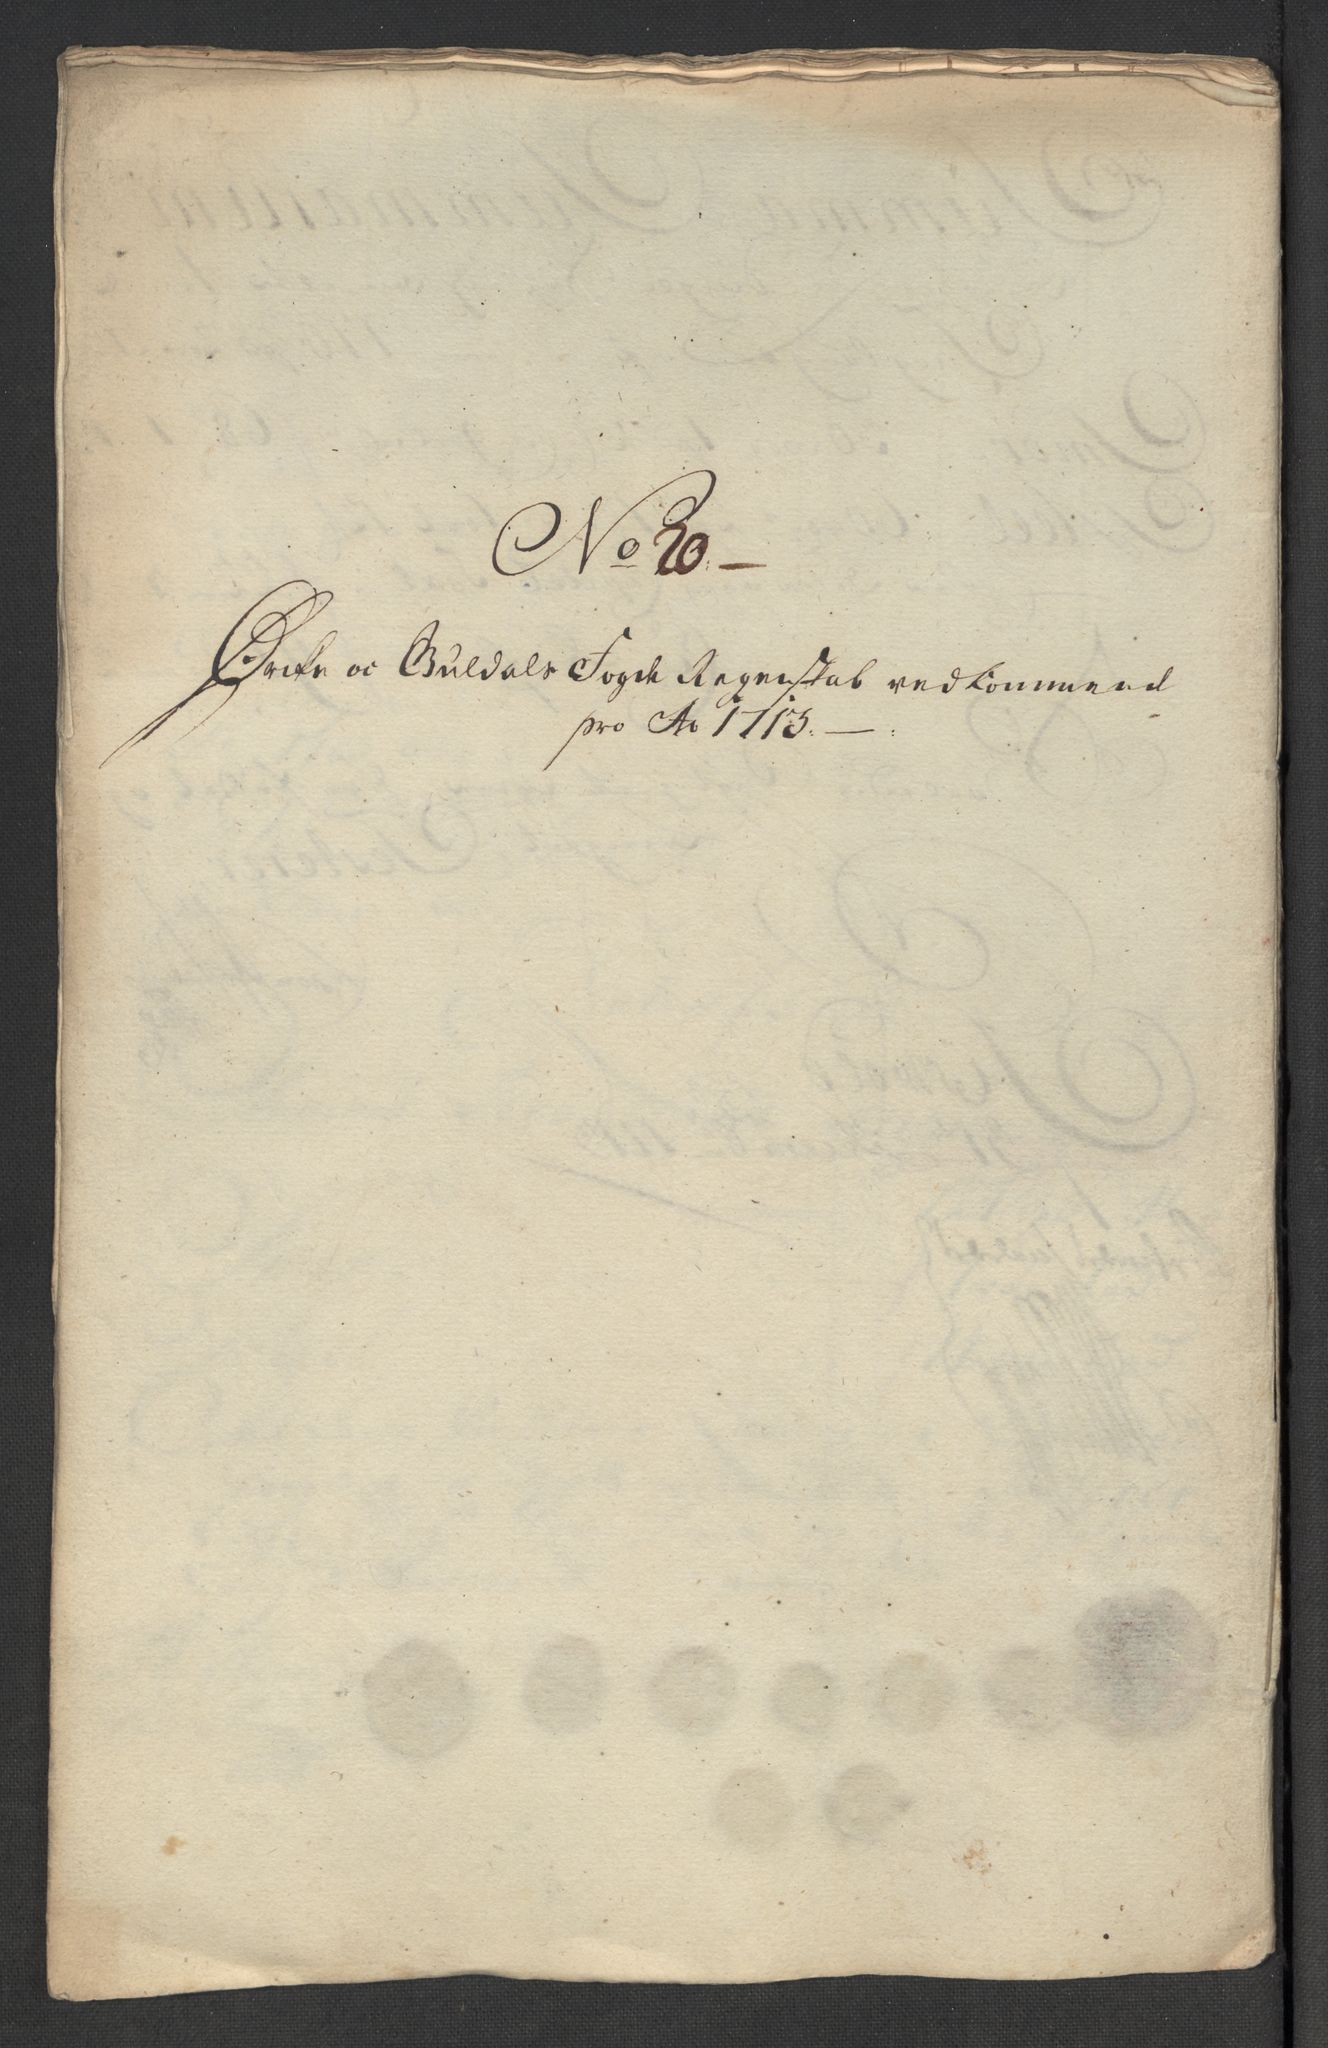 No 20. —
Ørcke oc Guldals Fogde Regenskab vedkommend
pro Ao 1713. —